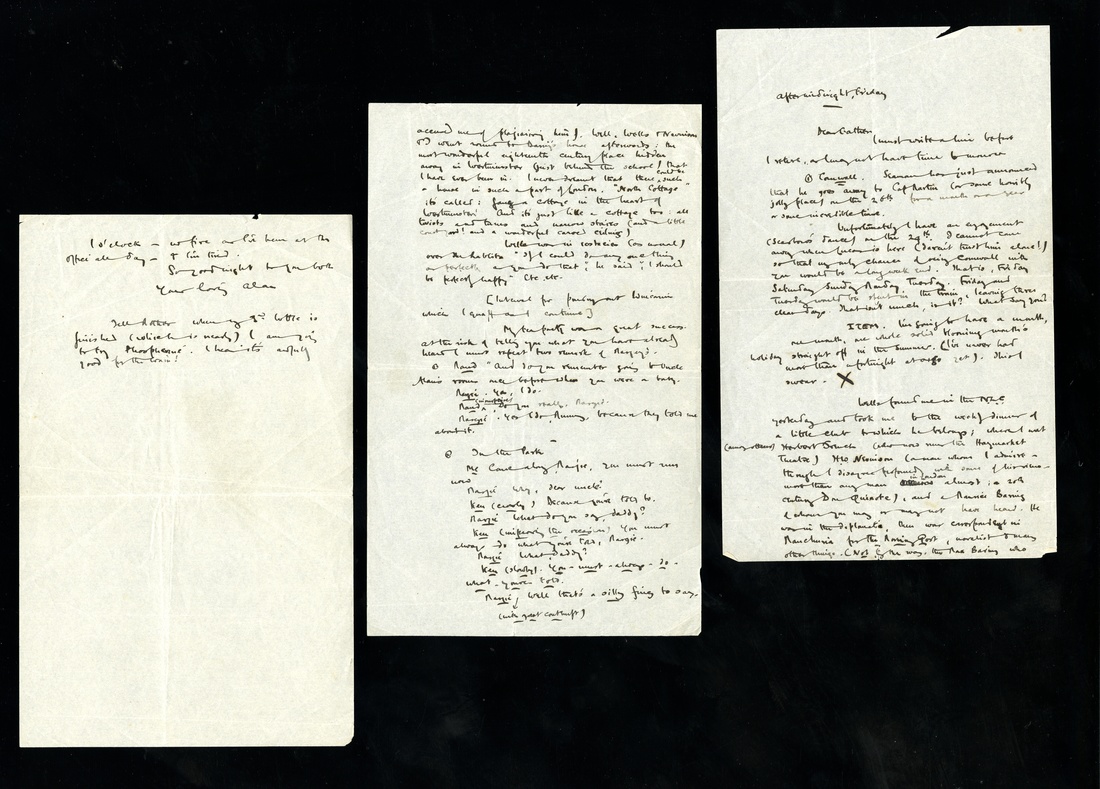 After midnight, Friday
Dear Father
I must write a line before
I retire, as I may not have time tomorrow
① Cornwall. Seaman has just announced
that he goes away to Cap Martin (or some
jolly place) on the 26th for a month or a year
or some incredible time.
Unfortunately I have an engagement
dance) on the 29th. I cannot come
away when is here (daren't trust him alone!)
so that my only chance of seeing Cornwall with
you would be a long week end. That is, Friday
Saturday Sunday Monday Tuesday. Friday and
Tuesday would be spent in the train, leaving three
clear days. That isn't much, is it? What say you?
ITEM. I'm going to have a month,
one month, one whole solid blooming month's
holiday straight off in the summer. (I've never had
more than a fortnight at a go yet). This I
swear. X
Wells found me in the N.L.C.
yesterday and took me to the weekly dinner of
a little club to which he belongs; where I met
(among others) Herbert (who now runs the Haymarket
Theatre) Newman (a man whom I admire -
though I disagree profoundly with some of his views -
more than any man in London almost; a 20th
century Don Quixote), and a Maurice Baring
of whom you may or may not have heard. He
was in the diplomatic, then war correspondent in
Manchuria for the Morning Post, novelist & many
other things. (Not by the way, the Max Baring who
accused me of plagiarising him). Well, Wells & Newman
& I went round to Baring's house afterwards: the
most wonderful eighteenth century place hidden
away in Westminster (just behind the school) that
I have ever been in. I never dreamt that there could be such
a house in such a part of London. "North Cottage"
it's called: a cottage in the heart of
Westminster! And it's just like a cottage too: all
twists and turns and narrow stairs (and a little
court yard! and a wonderful carved ceiling)
Wells was in ecstasies (as usual)
over the "If I could do any one thing
as perfectly as you do that", he said, "I should
be perfectly happy" Etc. etc.
[Interval for pouring out
which I quaff and continue]
My tea party was a great success.
At the risk of telling you what you have already
heard I must repeat two remarks of Marjorie's.
① Maud "And do you remember going to Uncle
Alan's rooms once before when you were a baby.
Marjorie. Yes, I do.
Maud Do you really, Marjorie.
Marjorie. Yes I do, Mummy, because they told me
about it.
② In the Park
Me Come along, Marjorie, you must run
now
Marjorie Why, dear uncle?
Ken Because you're told to.
Marjorie What do you say, daddy?
Ken (improving the occasion). You must
always do what you're told, Marjorie.
Marjorie What, Daddy?
Ken (slowly). You - must - always - do -
what - you're - told.
Marjorie, Well that's a silly thing to say.
(with great contempt)
1 o'clock - no fire as I've been at the
office all day - & I'm tired.
So good night to you both
Your loving Alan
Tell Mother when my 3rd bottle is
finished (which is nearly) I am going
to try Phospherine. I hear its awfully
good for the brain!